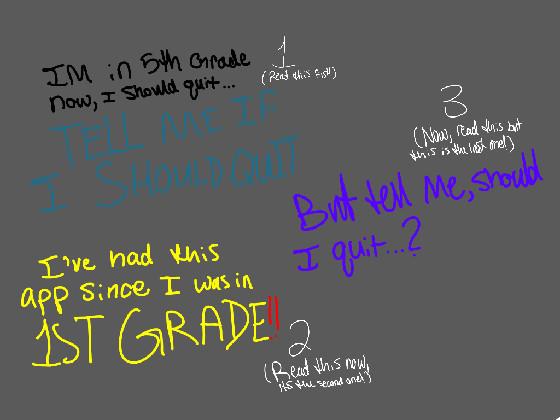 IM in 5th Grade
now, I should quit...
1
(Read this first!)
TELL ME IF
I SHOULD QUIT
I've had this
app since I was in
1ST GRADE!!
2
(Read this now,
its the second one!)
3
(Now, read this but
this is the last one!)
But tell me, should
I quit...?